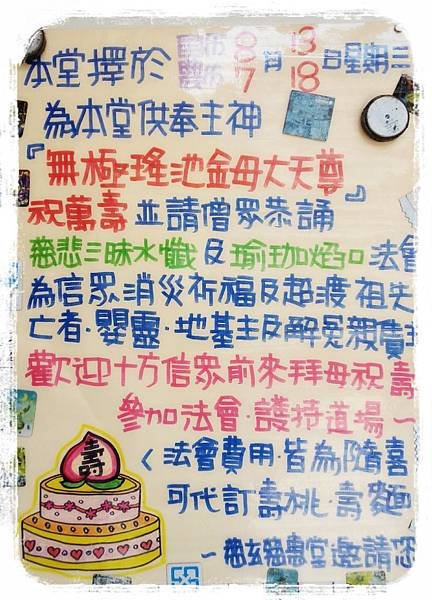 本堂擇於國曆8月13日星期三
農曆7 18
為本堂供奉主神
『無極瑤池金母大天尊』
祝萬壽並請僧眾恭誦
慈悲三昧水懺及瑜珈焰口法會
為信眾消災祈福及超渡祖先
亡者.嬰靈.地基主及解冤親債主
歡迎十方信眾前來拜母祝壽
參加法會.護持道場~
〈法會費用.皆為隨喜
可代訂壽桃.壽麵
~慈玄慈惠堂邀請您
壽